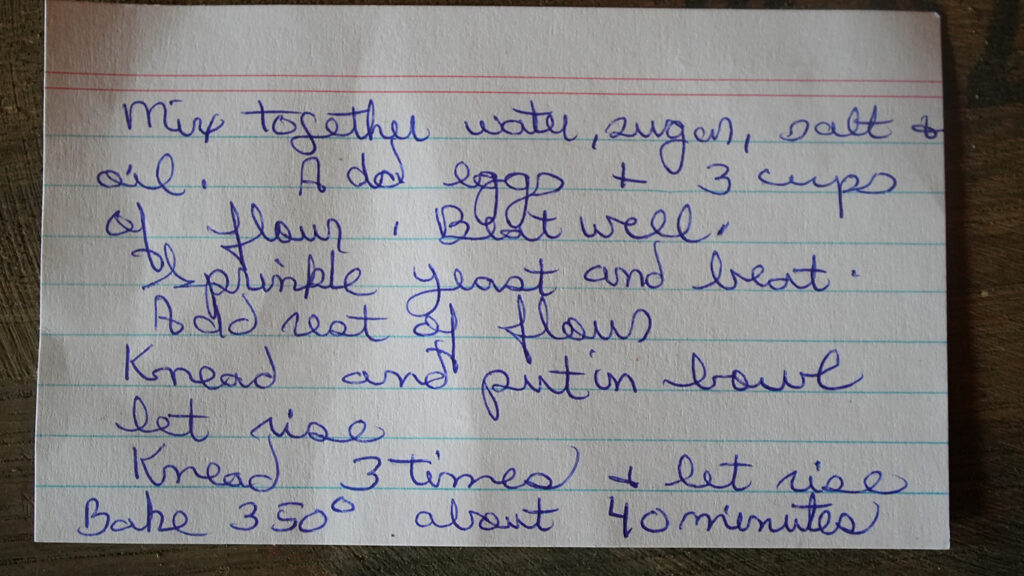 Mix together water, sugar, salt &
oil. Add eggs + 3 cups
of flour. Beat well.
Sprinkle yeast and beat.
Add rest of flour
Knead and put in bowl
let rise
Knead 3 times + let rise
Bake 350° about 40 minutes